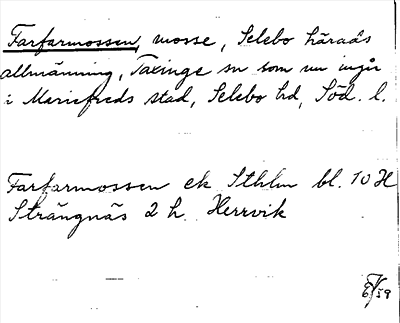 Farfarmossen, mosse, Selebo härads
allmänning, Taxinge sn som nu ingår
i Mariefreds stad, Selebo hd, Söd. l.
Farfarmossen ek Sthlm bl. 10 H
Strängnäs 2 h. Herrvik